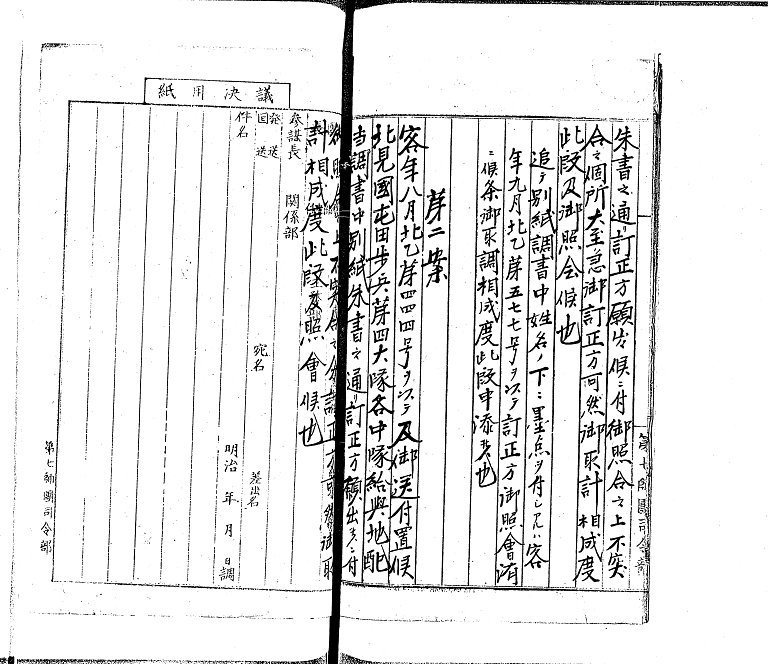 朱書之通訂正方願出候ニ付御照合之上不突
合之個所大至急御訂正方可然御取計相成度
此段及御照会候也
追テ別紙調書中姓名ノ下ニ墨点ヲ付シタルハ客
年九月北乙第五七七号ヲ以テ訂正方御照會済
ニ候条御取調相成度此段申添候也
第二案
客年八月北乙第四四四号ヲ以テ及御送付置候
北見國屯田歩兵第四大隊各中隊給與地配
当調書中別紙朱書之通訂正方願出候ニ付
御照合之上不突合之分訂正方可然御取
計相成度此段及照會候也
第七師團司令部
議决用紙
参謀長
関係部
発送
回送
件名
宛名
差出名
明治 年 月 日調
第七師團司令部